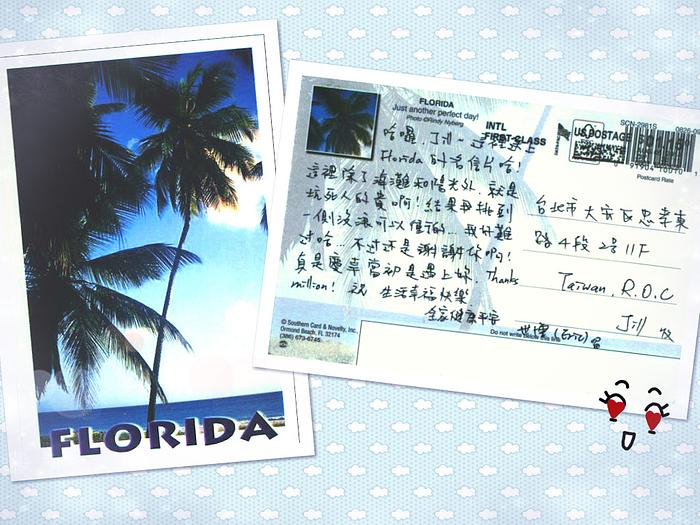 FLORIDA
FLORIDA
Just another perfect day!
Photo ©Rindy Nyberg
INTL
FIRST-CLASS
US POSTAGE
SCN-2981S
Postcard Rate
哈囉, Jill~ 這裡是
Florida 的名信片哈!
這裡除了海灘和陽光外, 就是
坑死人的貴啊! 結果
一個沒 可以 的... 我好難
過哈... 不過還是謝謝你啊!
真是慶幸當初是遇上妳. Thanks
million! 祝 生活幸福快樂
全家健康平安
世博 (Eric) 留
台北市大安區忠孝東
路4段2号11F
Taiwan, R.O.C
Jill 收
© Southern Card & Novelty, Inc.
Ormond Beach, FL 32174
(386) 673-6745
Do not write below this line